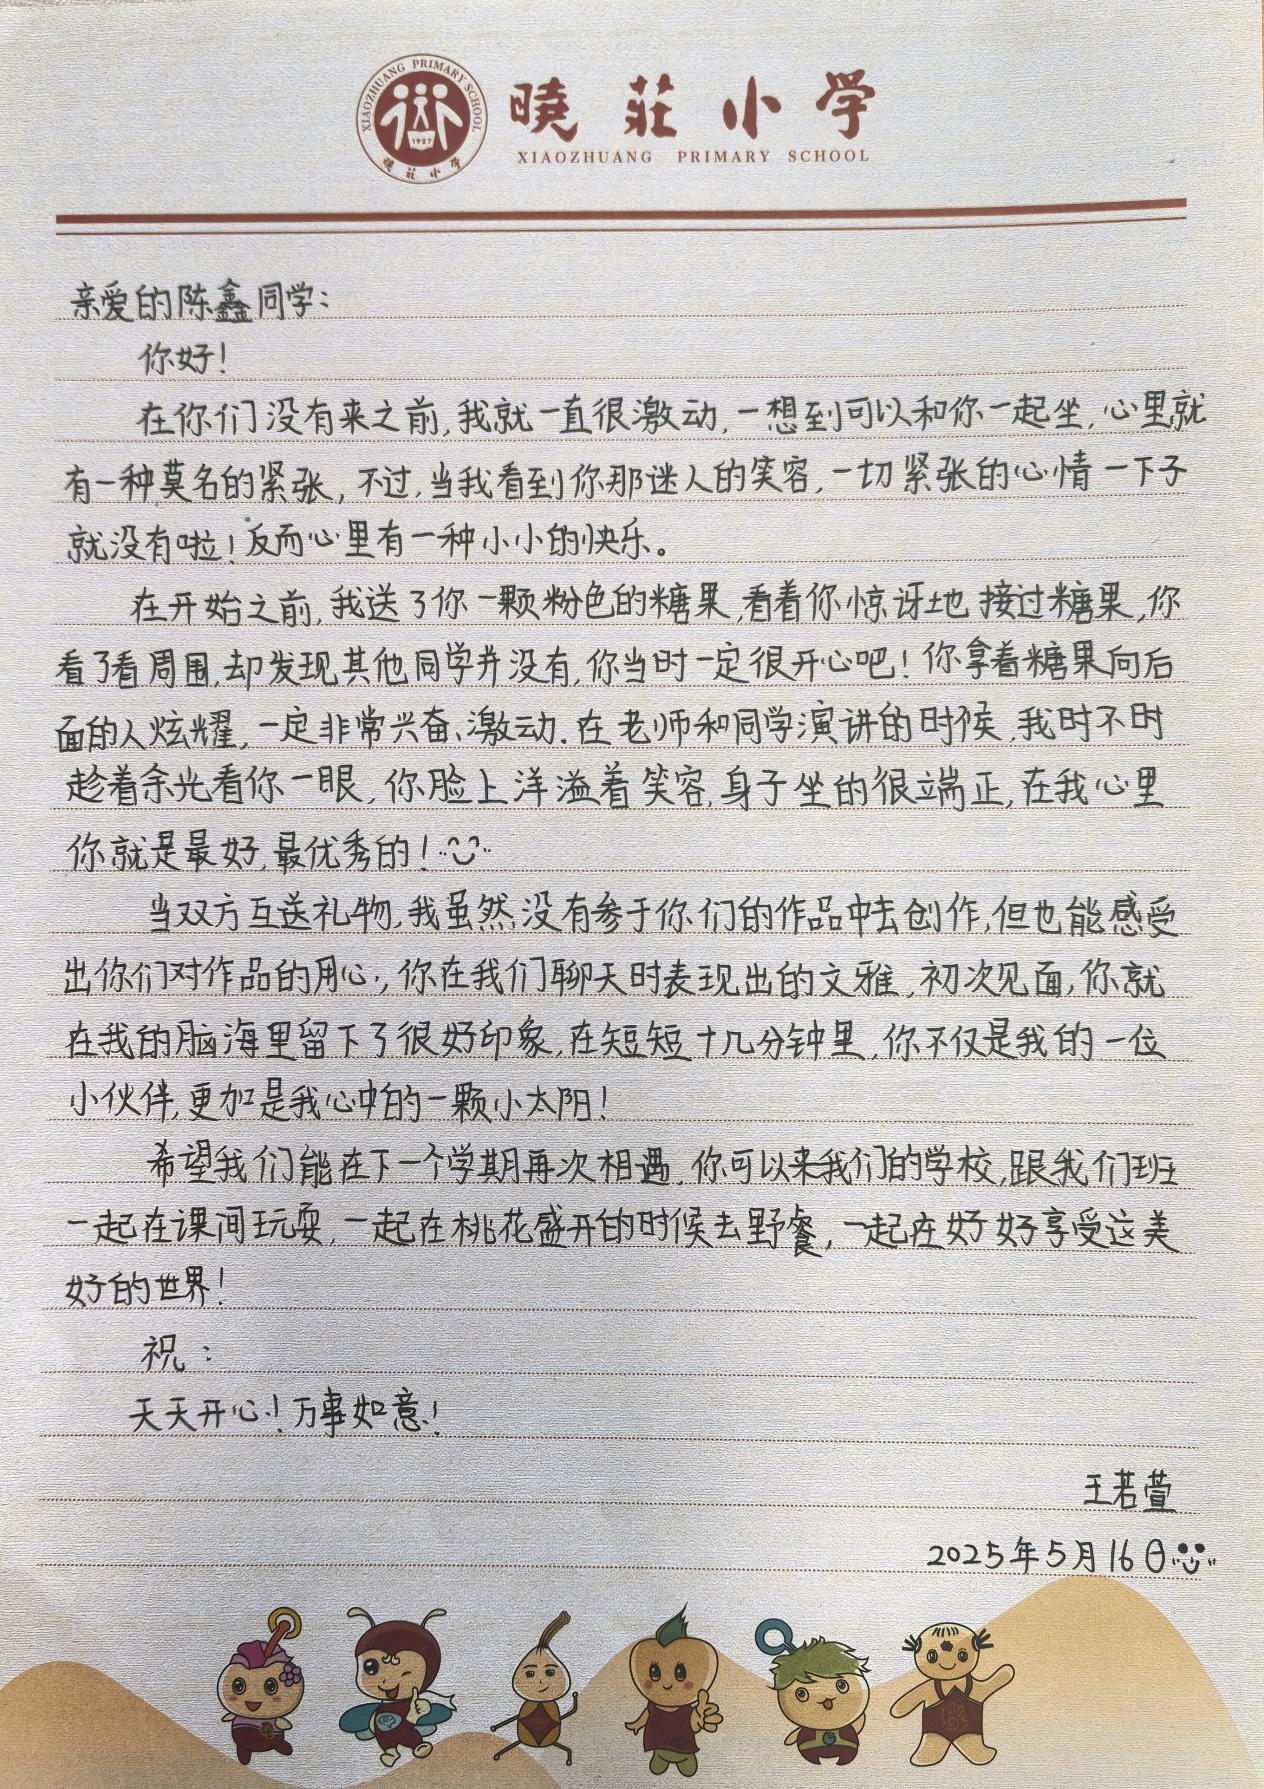 XIAOZHUANG PRIMARY SCHOOL
1927
曉莊小学
曉莊小学
XIAOZHUANG PRIMARY SCHOOL
亲爱的陈鑫同学：
你好！
在你们没有来之前，我就一直很激动，一想到可以和你一起坐，心里就
有一种莫名的紧张，不过，当我看到你那迷人的笑容，一切紧张的心情一下子
就没有啦！反而心里有一种小小的快乐。
在开始之前，我送了你一颗粉色的糖果，看着你惊讶地接过糖果，你
看了看周围，却发现其他同学并没有，你当时一定很开心吧！你拿着糖果向后
面的人炫耀，一定非常兴奋、激动．在老师和同学演讲的时候，我时不时
趁着余光看你一眼，你脸上洋溢着笑容，身子坐的很端正，在我心里
你就是最好，最优秀的！
当双方互送礼物，我虽然没有参于你们的作品中去创作，但也能感受
出你们对作品的用心，你在我们聊天时表现出的文雅，初次见面，你就
在我的脑海里留下了很好印象，在短短十几分钟里，你不仅是我的一位
小伙伴，更加是我心中的一颗小太阳！
希望我们能在下一个学期再次相遇，你可以来我们的学校，跟我们班
一起在课间玩耍，一起在桃花盛开的时候去野餐，一起在好好享受这美
好的世界！
祝：
天天开心！万事如意！
王若萱
2025年5月16日